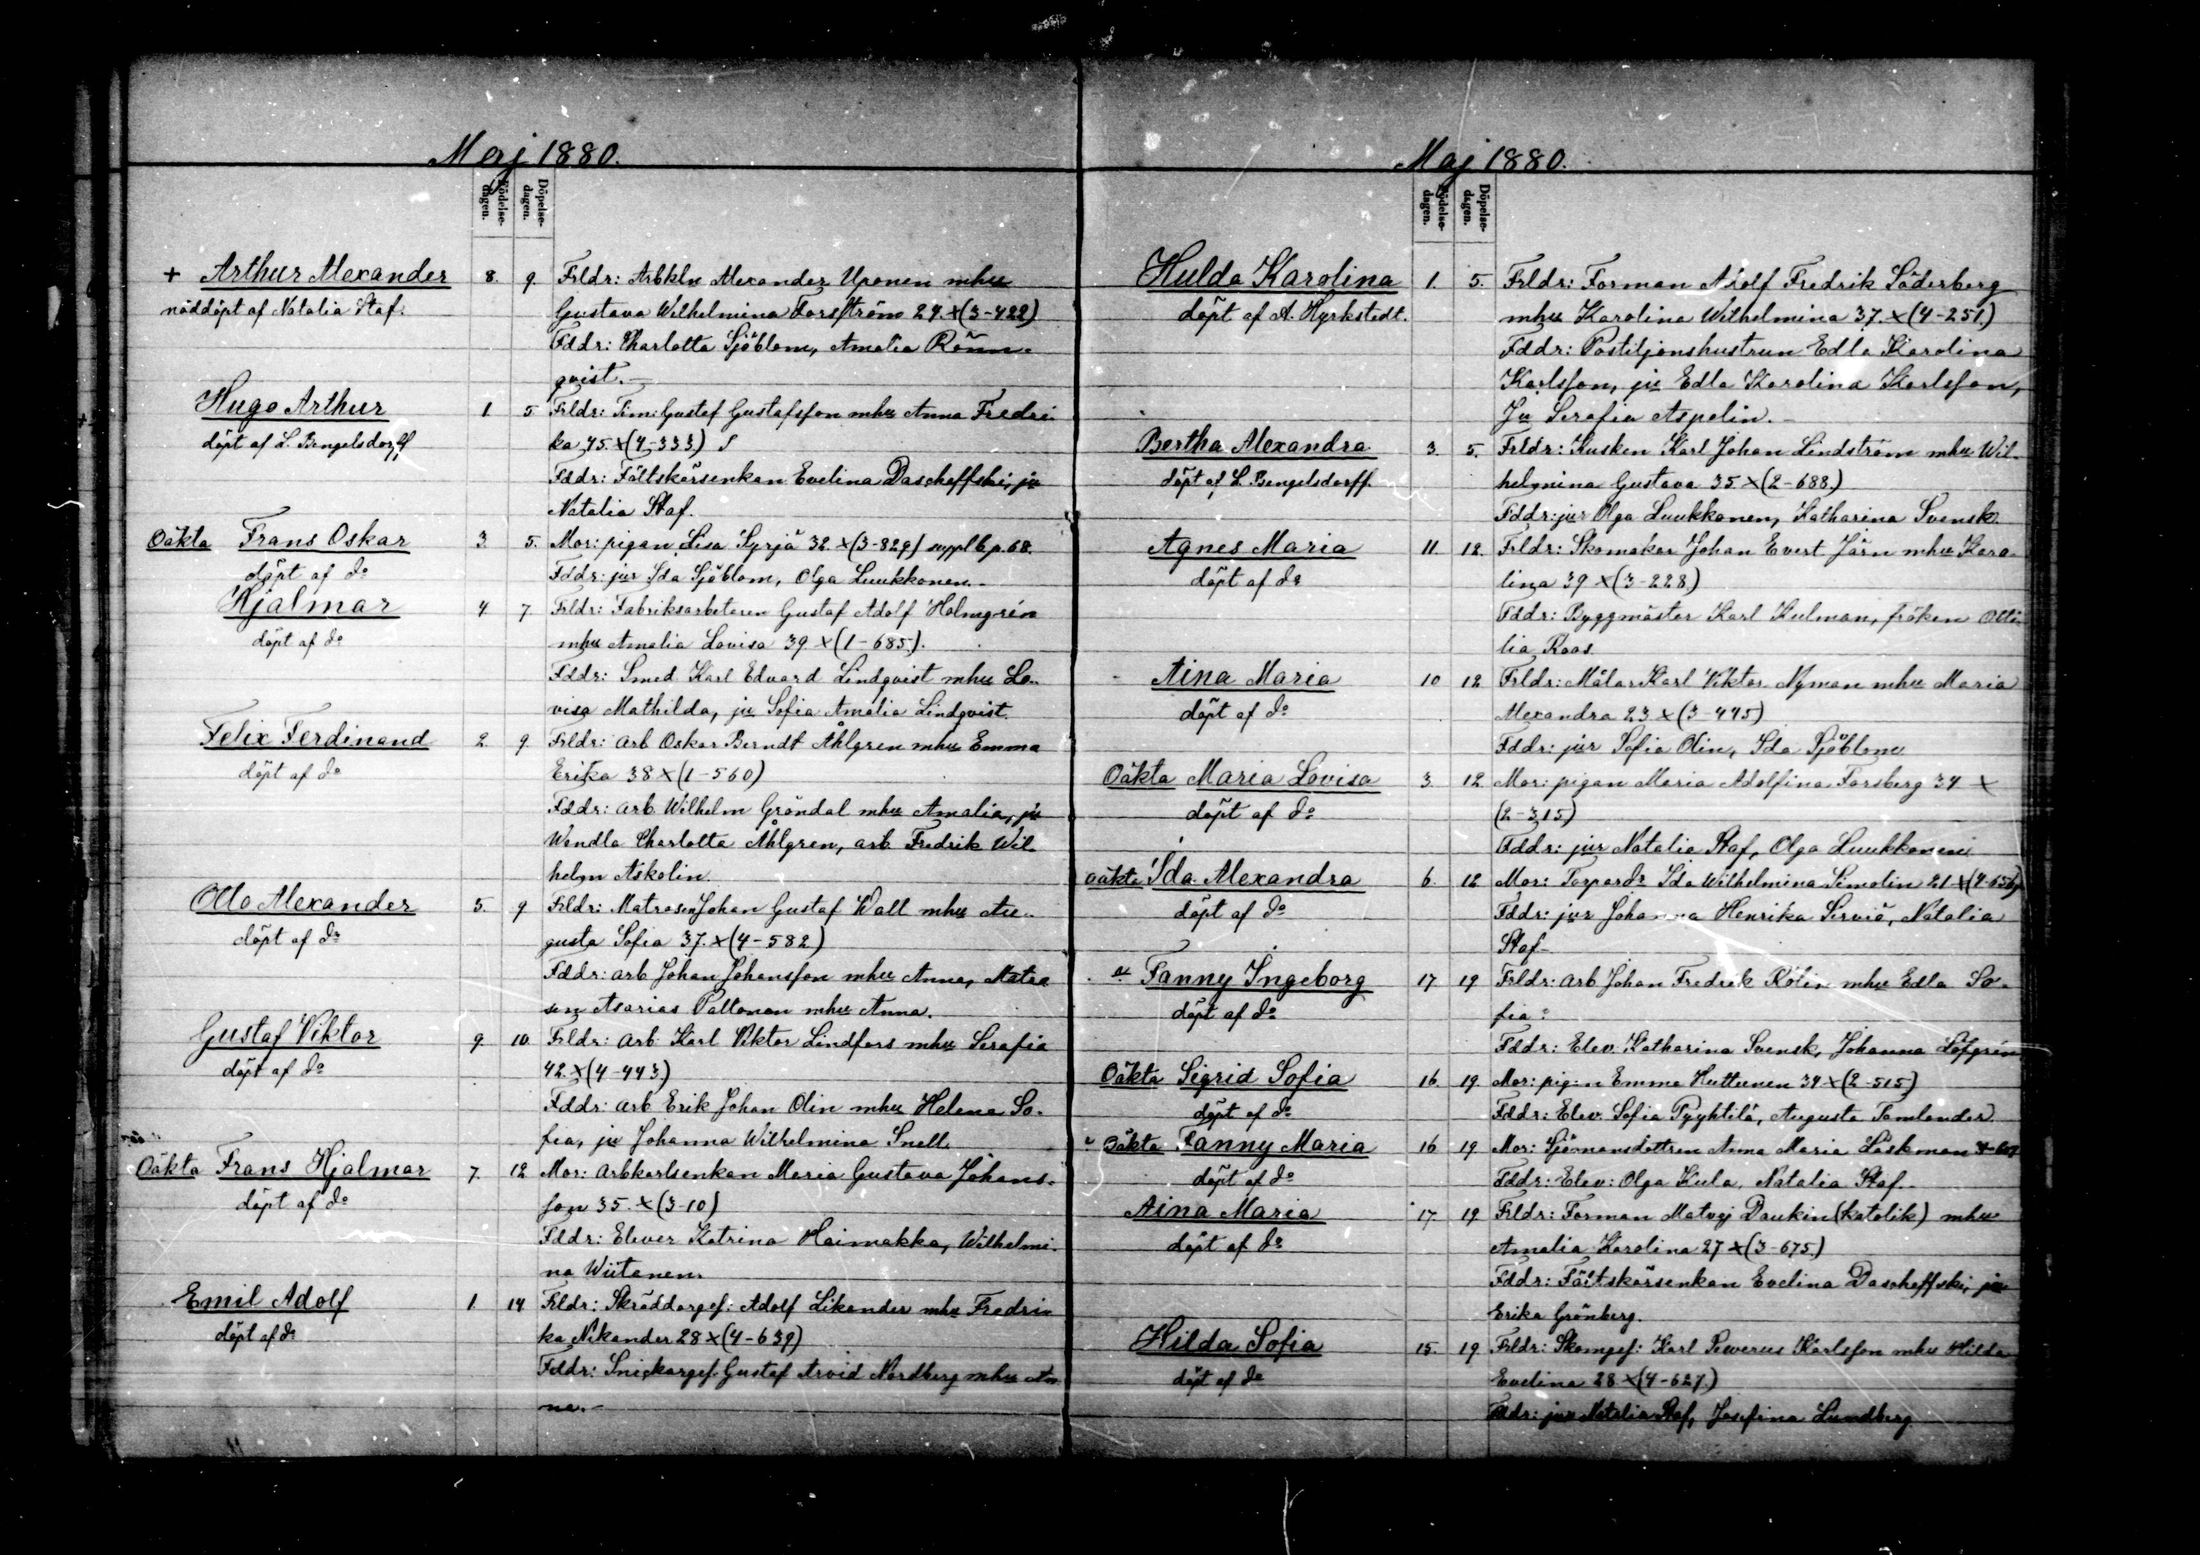 Maj 1880.
Födelse-
dagen.
Döpelse-
dagen.
+ Arthur Alexander 8. 9. Frldr: Arbkln Alexander Uponen mhu
nöddöpt af Natalia Staf. Gustava Wilhelmina Forsström 29.x(3-422)
Fddr: Charlotta Sjöblom, Amalia Rönn-
qvist.-
Hugo Arthur 1 5 Frldr: Tim: Gustaf Gustafsson mhu Anna Fredri-
döpt af L. Bengelsdorff ka 45.x(4-333)
Fddr: Fältskärsenkan Evelina Dascheffski, ju
Natalia Staf.
Oäkta Frans Oskar 3. 5. Mor: pigan Lisa Syrjä 32.x(3-829) supplb p. 68.
döpt af do Fddr: jur Ida Sjöblom, Olga Luukkonen.-
Hjalmar 4 7. Frldr: Fabriksarbetaren Gustaf Adolf Holmgrén
döpt af do mhu Amalia Lovisa 39 x(1-685).
Fddr: Smed Karl Edvard Lindqvist mhu Lo-
visa Mathilda, ju Sofia Amalia Lindqvist.
Felix Ferdinand 2. 9. Frldr: arb Oskar Berndt Åhlgren mhu Emma
döpt af do Erika 38 x(1-560)
Fddr: arb Wilhelm Gröndal mhu Amalia, ju
Wendla Charlotta Åhlgren, arb Fredrik Wil-
helm Askolin.
Otto Alexander 5. 9 Frldr: Matrosen Johan Gustaf Wall mhu Au-
döpt af do gusta Sofia 37.x(4-582)
Fddr: arb Johan Johansson mhu Anna, Matro
sen Asarias Paltonen mhu Anna.
Gustaf Viktor 9. 10. Frldr: arb Karl Viktor Lindfors mhu Serafia
döpt af do 42.x(4-443)
Fddr: arb Erik Johan Olin mhu Helena So-
fia, ju Johanna Wilhelmina Snell.
Oäkta Frans Hjalmar 7. 12 Mor: Arbkarlsenkan Maria Gustava Johans-
döpt af do son 35.x(3-10)
Fddr: Elever Katrina Haimakka, Wilhelmi-
na Wiitanen.
Emil Adolf 1. 14 Frldr: Skräddargef: Adolf Likander mhu Fredri-
döpt af do ka Nikander 28 x(4-639)
Fddr: Snickargef. Gustaf Arvid Nordberg mhu An-
na.-
Maj 1880.
Födelse-
dagen.
Döpelse-
dagen.
Hulda Karolina 1. 5. Frldr: Forman Adolf Fredrik Söderberg
döpt af A. Hyrkstedt. mhu Karolina Wilhelmina 37.x(4-251.)
Fddr: Postiljonshustrun Edla Karolina
Karlsson, ju Edla Karolina Karlsson,
Ju Serafia Aspelin.-
Bertha Alexandra 3. 5. Frldr: Kusken Karl Johan Lindström mhu Wil-
döpt af L. Bengelsdorff. helmina Gustava 35 x(2-688.)
Fddr: jur Olga Luukkonen, Katharina Svensk.
Agnes Maria 11. 12. Frldr: Skomakar Johan Evert Järn mhu Karo-
döpt af do lina 39 x(3-228)
Fddr: Byggmästar Karl Kulman, fröken Otti-
lia Roos.
Aina Maria 10 12 Frldr: Målar Karl Viktor Nyman mhu Maria
döpt af do Alexandra 23 x(3-445)
Fddr: jur Sofia Olin, Ida Sjöblom
Oäkta Maria Lovisa 3. 12. Mor: pigan Maria Adolfina Forsberg 34 x
döpt af do (2-315)
Fddr: jur Natalia Staf, Olga Luukkonen
Oäkta Ida Alexandra 6. 12 Mor: Torpardr Ida Wilhelmina Simolin 21 x
döpt af do Fddr: jur Johanna Henrika Serviö, Natalia
Staf-
Fanny Ingeborg 17. 19. Frldr: arb Johan Fredrik Rölin mhu Edla So-
döpt af do fia:
Fddr: Elev. Katharina Svensk, Johanna Löfgrén
Oäkta Sigrid Sofia 16. 19. Mor: pigan Emma Huttunen 34 x(2-515)
döpt af do Fddr: Elev. Sofia Pyyhtilä, Augusta Tamlander
Oäkta Fanny Maria 16 19. Mor: Sjömansdottren Anna Maria Läskman
döpt af do Fddr: Elev: Olga Kula, Natalia Staf.
Aina Maria 17. 19 Frldr: Forman Matvej Daukin (katolik) mhu
döpt af do Amalia Karolina 27 x(3-675.)
Fddr: Fältskärsenkan Evelina Dascheffski, ju
Erika Grönberg.
Hilda Sofia 15. 19 Frldr: Skomgef: Karl Severus Karlsson mhu Hilda
döpt af do Evelina 28 x(4-627.)
Fddr: jur Natalia Staf, Josefina Lundberg